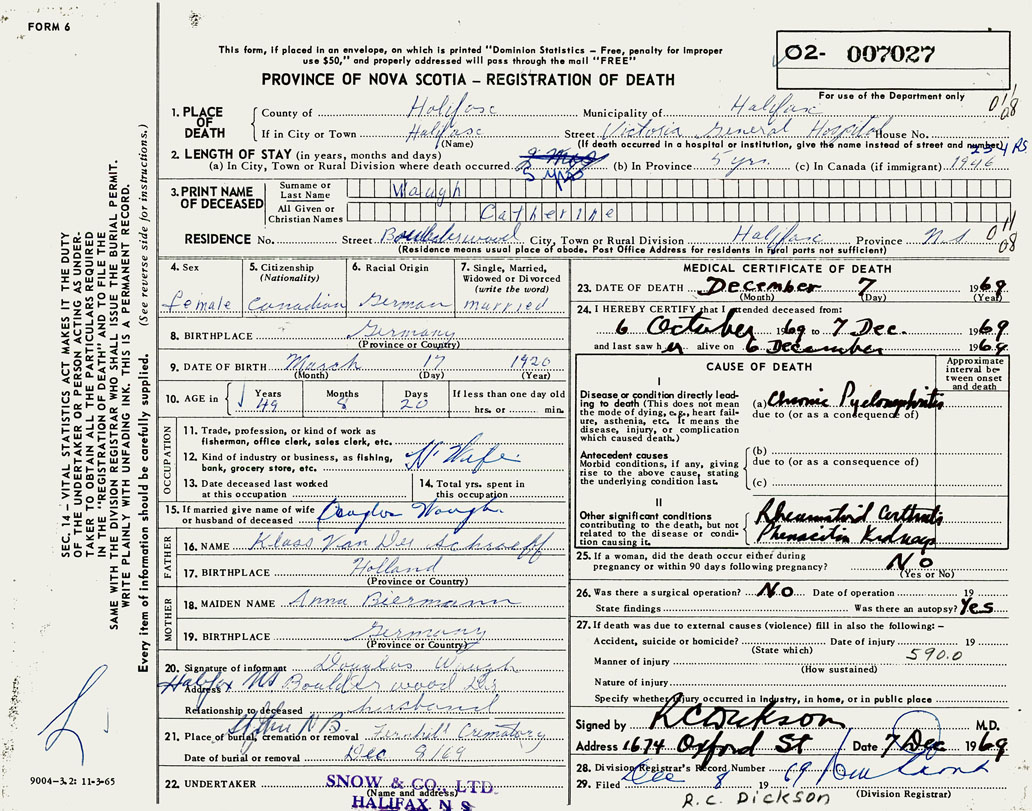 FORM 6
This form, if placed in an envelope, on which is printed "Dominion Statistics — Free, penalty for improper
use $50," and properly addressed will pass through the mail "FREE"
PROVINCE OF NOVA SCOTIA — REGISTRATION OF DEATH
02- 007027
For use of the Department only
1. PLACE OF DEATH
County of Halifax Municipality of Halifax 01/08
If in City or Town Halifax Street Victoria General Hospital House No.
(Name) (If death occurred in a hospital or institution, give the name instead of street and number)
2. LENGTH OF STAY (in years, months and days)
(a) In City, Town or Rural Division where death occurred 5 yrs (b) In Province 5 yrs. (c) In Canada (if immigrant) 1946
3. PRINT NAME OF DECEASED
Surname or Last Name Waugh
All Given or Christian Names Catherine
RESIDENCE No. Street Boulderwood City, Town or Rural Division Halifax Province N.S. 01/08
(Residence means usual place of abode. Post Office Address for residents in rural parts not sufficient)
4. Sex female
5. Citizenship (Nationality) Canadian
6. Racial Origin German
7. Single, Married, Widowed or Divorced (write the word) married
8. BIRTHPLACE Germany
(Province or Country)
9. DATE OF BIRTH March 17 1920
(Month) (Day) (Year)
10. AGE in Years 49 Months 8 Days 20 If less than one day old
hrs. or min.
OCCUPATION
11. Trade, profession, or kind of work as
fisherman, office clerk, sales clerk, etc.
12. Kind of industry or business, as fishing, H' Wife
bank, grocery store, etc.
13. Date deceased last worked at this occupation
14. Total yrs. spent in this occupation
15. If married give name of wife
or husband of deceased Douglas Waugh
FATHER
16. NAME Klaas Van Der
17. BIRTHPLACE Holland
(Province or Country)
MOTHER
18. MAIDEN NAME Anna Biermann
19. BIRTHPLACE Germany
(Province or Country)
20. Signature of informant Douglas Waugh
Address Halifax NS Boulderwood
Relationship to deceased husband
21. Place of burial, cremation or removal NB. Crematory
Date of burial or removal Dec 9/69
22. UNDERTAKER SNOW & CO., LTD.
(Name and address)
HALIFAX, N S
MEDICAL CERTIFICATE OF DEATH
23. DATE OF DEATH December 7 1969
(Month) (Day) (Year)
24. I HEREBY CERTIFY that I attended deceased from:
6 October 1969 to 7 Dec. 1969
and last saw her alive on 6 December 1969
CAUSE OF DEATH
Approximate interval between onset and death
I
Disease or condition directly leading to death (This does not mean the mode of dying, e.g., heart failure, asthenia, etc. It means the disease, injury, or complication which caused death.)
(a) Chronic Pyelonephritis
due to (or as a consequence of)
Antecedent causes
Morbid conditions, if any, giving rise to the above cause, stating the underlying condition last.
(b)
due to (or as a consequence of)
(c)
II
Other significant conditions contributing to the death, but not related to the disease or condition causing it.
Rheumatoid Arthritis
Phenacitin Kidneys
25. If a woman, did the death occur either during
pregnancy or within 90 days following pregnancy? No
(Yes or No)
26. Was there a surgical operation? No Date of operation 19
State findings Was there an autopsy? Yes
27. If death was due to external causes (violence) fill in also the following:—
Accident, suicide or homicide? Date of injury 19
(State which) 590.0
Manner of injury
(How sustained)
Nature of injury
Specify whether injury occurred in Industry, in home, or in public place
Signed by RC Dickson M.D.
Address 1674 Oxford St Date 7 Dec 1969
28. Division Registrar's Record Number
29. Filed Dec 8 1969
(Division Registrar)
R.C. DICKSON
SEC. 14 — VITAL STATISTICS ACT MAKES IT THE DUTY
OF THE UNDERTAKER OR PERSON ACTING AS UNDER-
TAKER TO OBTAIN ALL THE PARTICULARS REQUIRED
IN THE "REGISTRATION OF DEATH" AND TO FILE THE
SAME WITH THE DIVISION REGISTRAR WHO SHALL ISSUE THE BURIAL PERMIT.
WRITE PLAINLY WITH UNFADING INK. THIS IS A PERMANENT RECORD.
Every item of information should be carefully supplied. (See reverse side for instructions.)
9004—3.2: 11-3-65